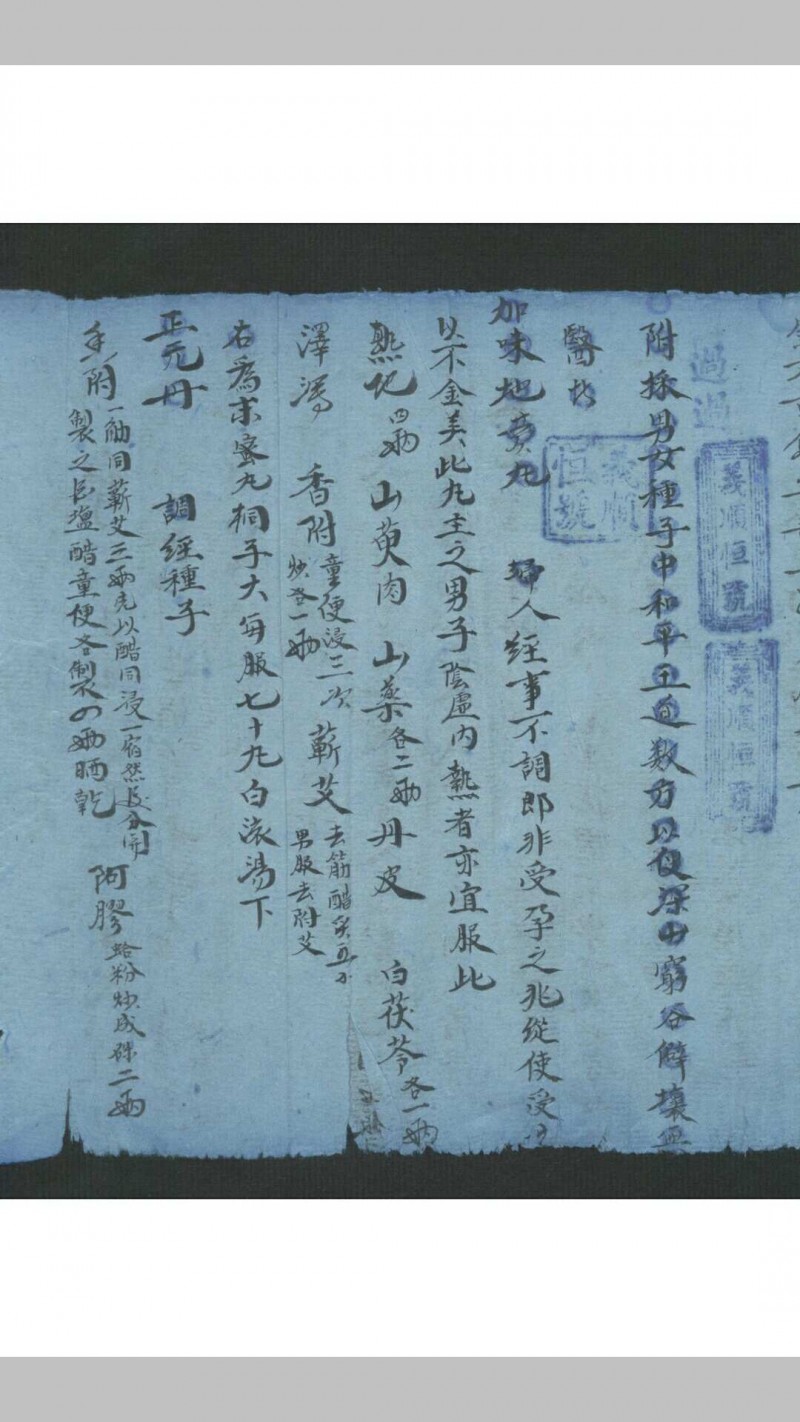 附採男女種子中和平正道数方以便深山窮谷僻壤無
醫於
加味地黄丸 婦人經事不調即非受孕之兆從使受
以不金美此丸主之男子陰虛内熱者亦宜服此
熟地四兩 山萸肉 山藥各二兩 丹皮 白茯苓各一兩
澤瀉 香附童便浸三次炒各一兩 蘄艾去筋醋炙男服去附艾
右為末蜜丸桐子大每服七十丸白滚湯下
正元丹 調經種子
香附一觔同蘄艾三兩先以醋同浸一宿然後分開製之以塩醋童便各製四兩晒乾 阿膠蛤粉炒成珠二兩
義順恒號
義順恒號
義順恒號
過過